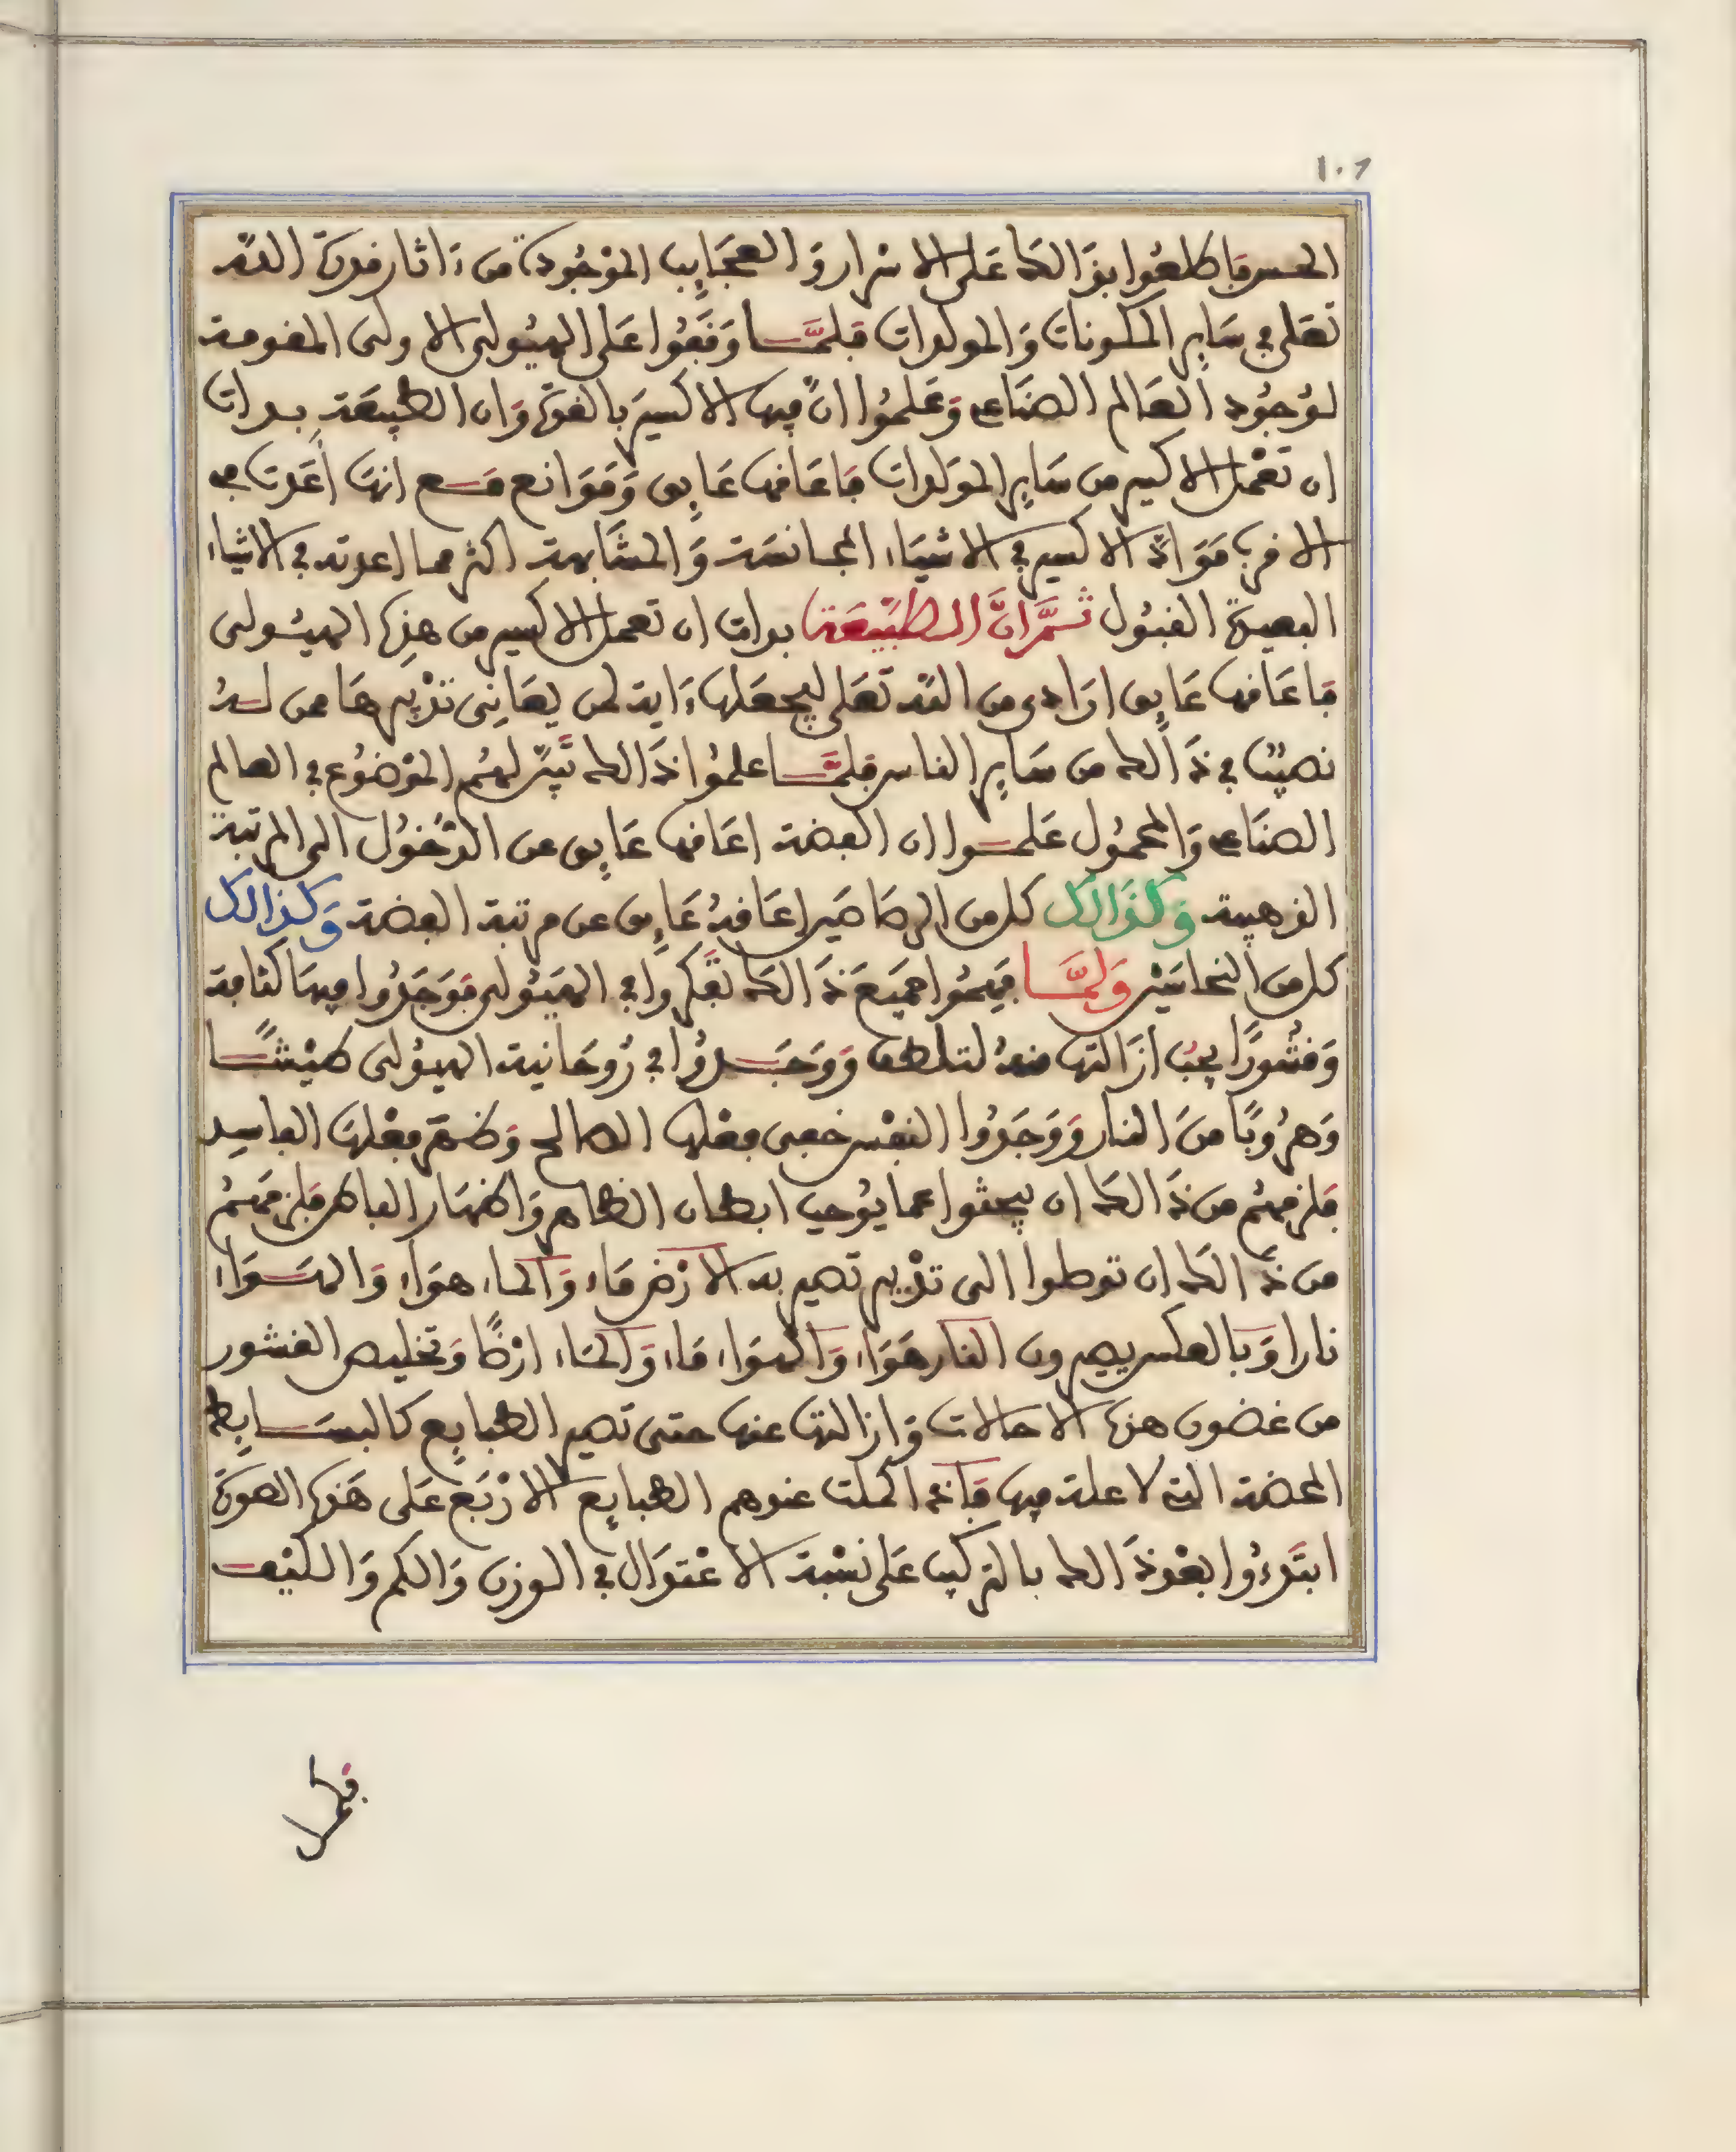 ١٠٦
الحس فاطلعوا بذالك على الاسرار والعجايب الموجودة من ءاثار قدرة الله
تعلى في ساير المكونات والمولدات فلما وقفوا على الهيولى الاولى المقومة
لوجود العالم الصناعي وعلموا ان فيها الاكسير بالقوة وان الطبيعة بدات
ان تعمل الاكسير من ساير المولدات فاعاقها عايق وموانع مع انها اعدت في
الاقرب مواد الاكسير في الاشياء المجانسة والمشابهة اكثر مما اعدته في الاشياء
البعيدة القبول ثم ان الطبيعة بدات ان تعمل الاكسير من هذه الهيولى
فاعاقها عايق ارادي من الله تعلى ليجعلها ءاية لمن يعاني تدبيرها ممن له
نصيب في ذالك من ساير الناس فلما علموا ذالك تبين لهم الموضوع في العالم
الصناعي والمحمول علموا ان الفضة اعاقها عايق عن الدخول الى المرتبة
الذهبية وكذالك كل من الرصاصين اعاقه عايق عن مرتبة الفضة وكذالك
كل من النحاسين ولما فهموا جميع ذالك تفكروا في الهيولى فوجدوا فيها كثافة
وقشورا يجب ازالتها منه لتلطف ووجدوا في روحانية الهيولى طيشا
وهروبا من النار ووجدوا النفس خفي فعلها الصالح وظهر فعلها الفاسد
فلزمهم من ذالك ان يبحثوا عما يوجب ابطان الظاهر واظهار الباطن فلزمهم
من ذالك ان توصلوا الى تدبير تصير به الارض ماء والماء هواء والهواء
نارا وبالعكس يصيرون النار هواء والهواء ماء والماء ارضا وتخليص القشور
من غضون هذه الاحالات وازالتها عنها حتى تصير الطبايع كالبسايط
المحضة التي لا علة فيها فاذا كملت عندهم الطبايع الاربع على هذه الصورة
ابتدءوا بعد ذالك بالتركيب على نسبة الاعتدال في الوزن والكم والكيف